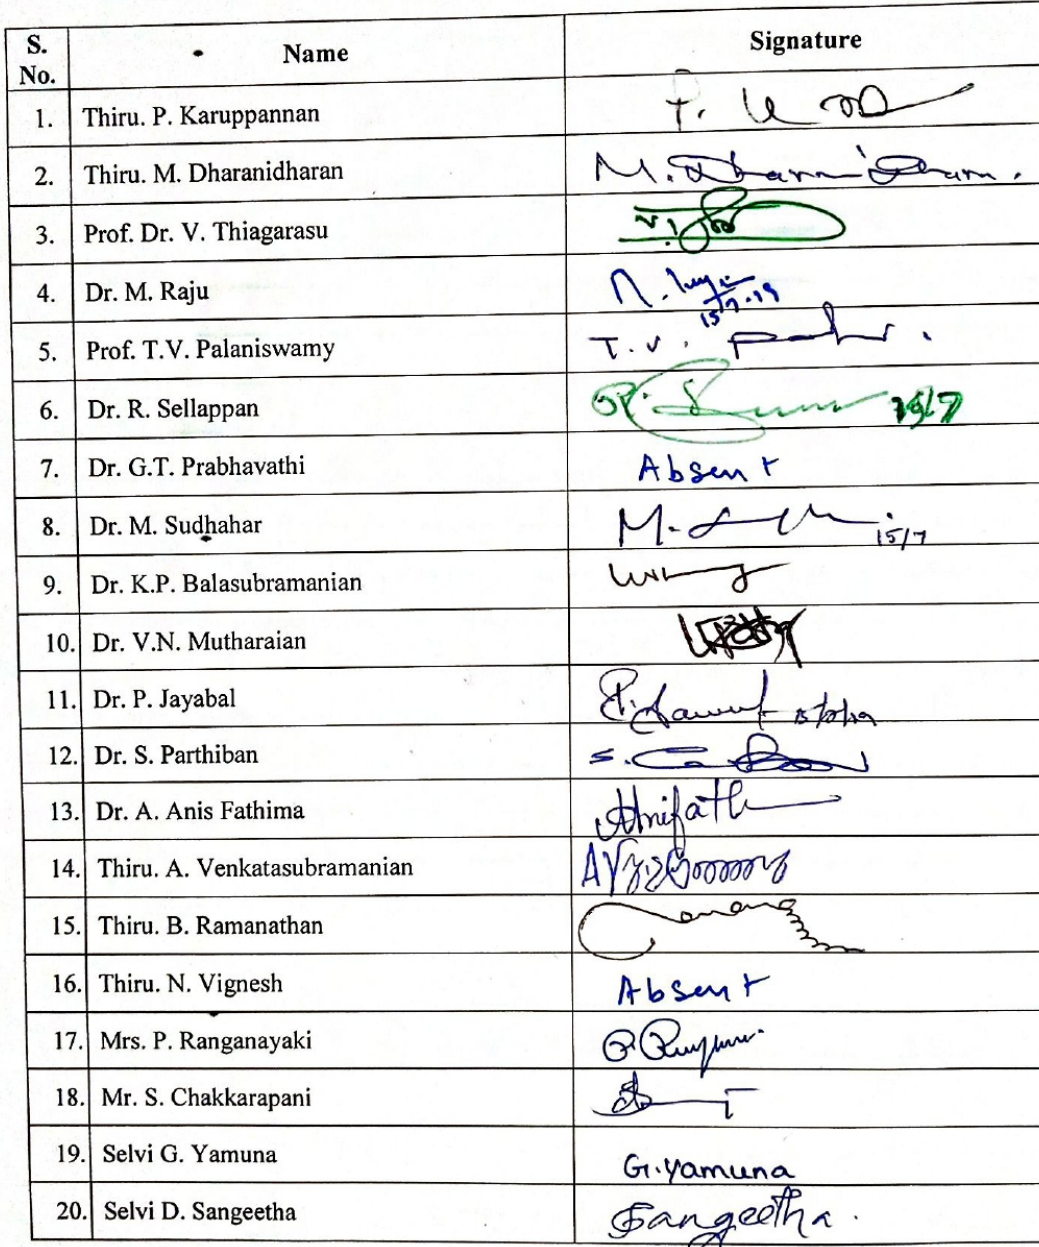 S. No. Name Signature
1. Thiru. P. Karuppannan
2. Thiru. M. Dharanidharan
3. Prof. Dr. V. Thiagarasu
4. Dr. M. Raju 15.7.19
5. Prof. T.V. Palaniswamy T.V.
6. Dr. R. Sellappan 15/7
7. Dr. G.T. Prabhavathi Absent
8. Dr. M. Sudhahar M. 15/7
9. Dr. K.P. Balasubramanian
10. Dr. V.N. Mutharaian
11. Dr. P. Jayabal
12. Dr. S. Parthiban S.
13. Dr. A. Anis Fathima
14. Thiru. A. Venkatasubramanian
15. Thiru. B. Ramanathan
16. Thiru. N. Vignesh Absent
17. Mrs. P. Ranganayaki
18. Mr. S. Chakkarapani
19. Selvi G. Yamuna G. Yamuna
20. Selvi D. Sangeetha Sangeetha.